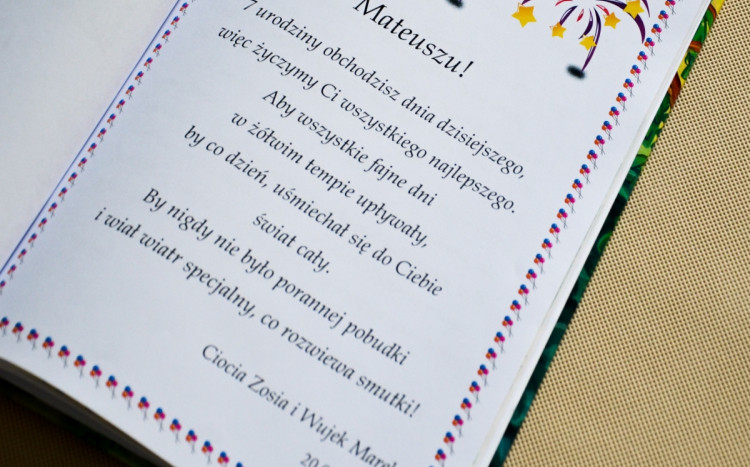 Mateuszu!
7 urodziny obchodzisz dnia dzisiejszego,
więc życzymy Ci wszystkiego najlepszego.
Aby wszystkie fajne dni
w żółwim tempie upływały,
by co dzień, uśmiechał się do Ciebie
świat cały.
By nigdy nie było porannej pobudki
i wiał wiatr specjalny, co rozwiewa smutki!
Ciocia Zosia i Wujek Marek